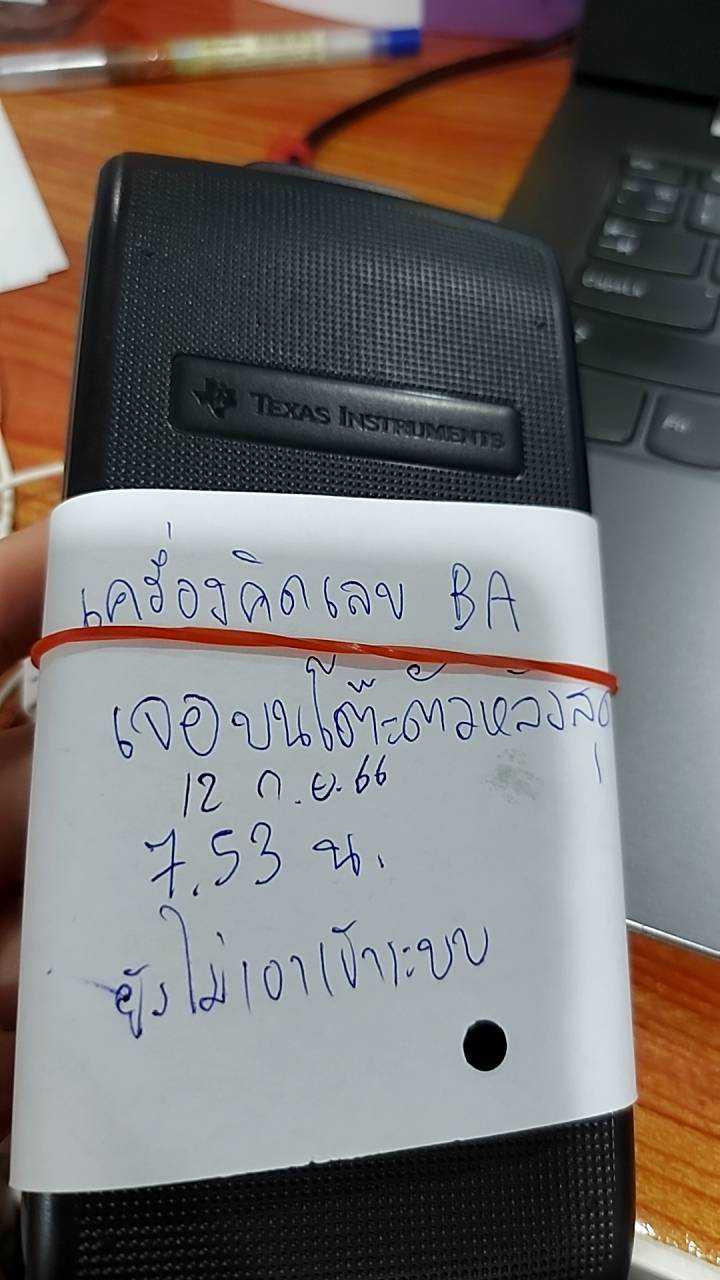 TEXAS INSTRUMENTS
เครื่องคิดเลข BA
เจอบนโต๊ะตัวหลังสุด
12 ก.ย. 66
7.53 น.
ยังไม่เอาเข้าระบบ